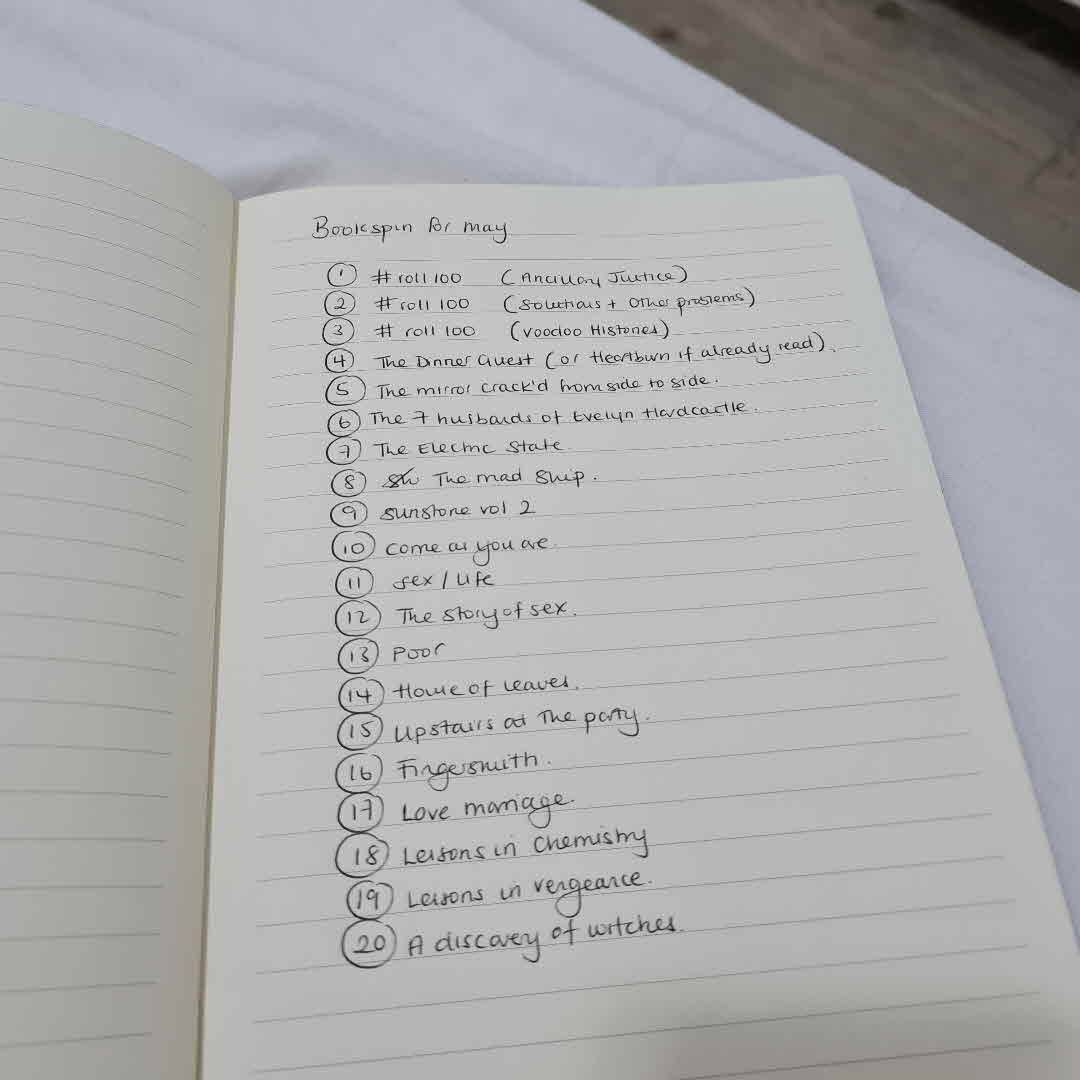 Bookspin for may
1 #roll 100 (Ancillary Justice)
2 #roll 100 (Solutions + Other problems)
3 # roll 100 (Voodoo Histories)
4 The Dinner Guest (or Heartburn if already read).
5 The mirror crack'd from side to side.
6 The 7 husbands of Evelyn Hardcastle.
7 The Electric State.
8 The mad Ship.
9 Sunstone vol 2
10 Come as you are.
11 Sex / Life
12 The Story of sex.
13 Poor
14 House of Leaves.
15 Upstairs at The party.
16 Fingersmith.
17 Love marriage.
18 Lessons in Chemistry
19 Lessons in vengeance.
20 A discovey of witches.